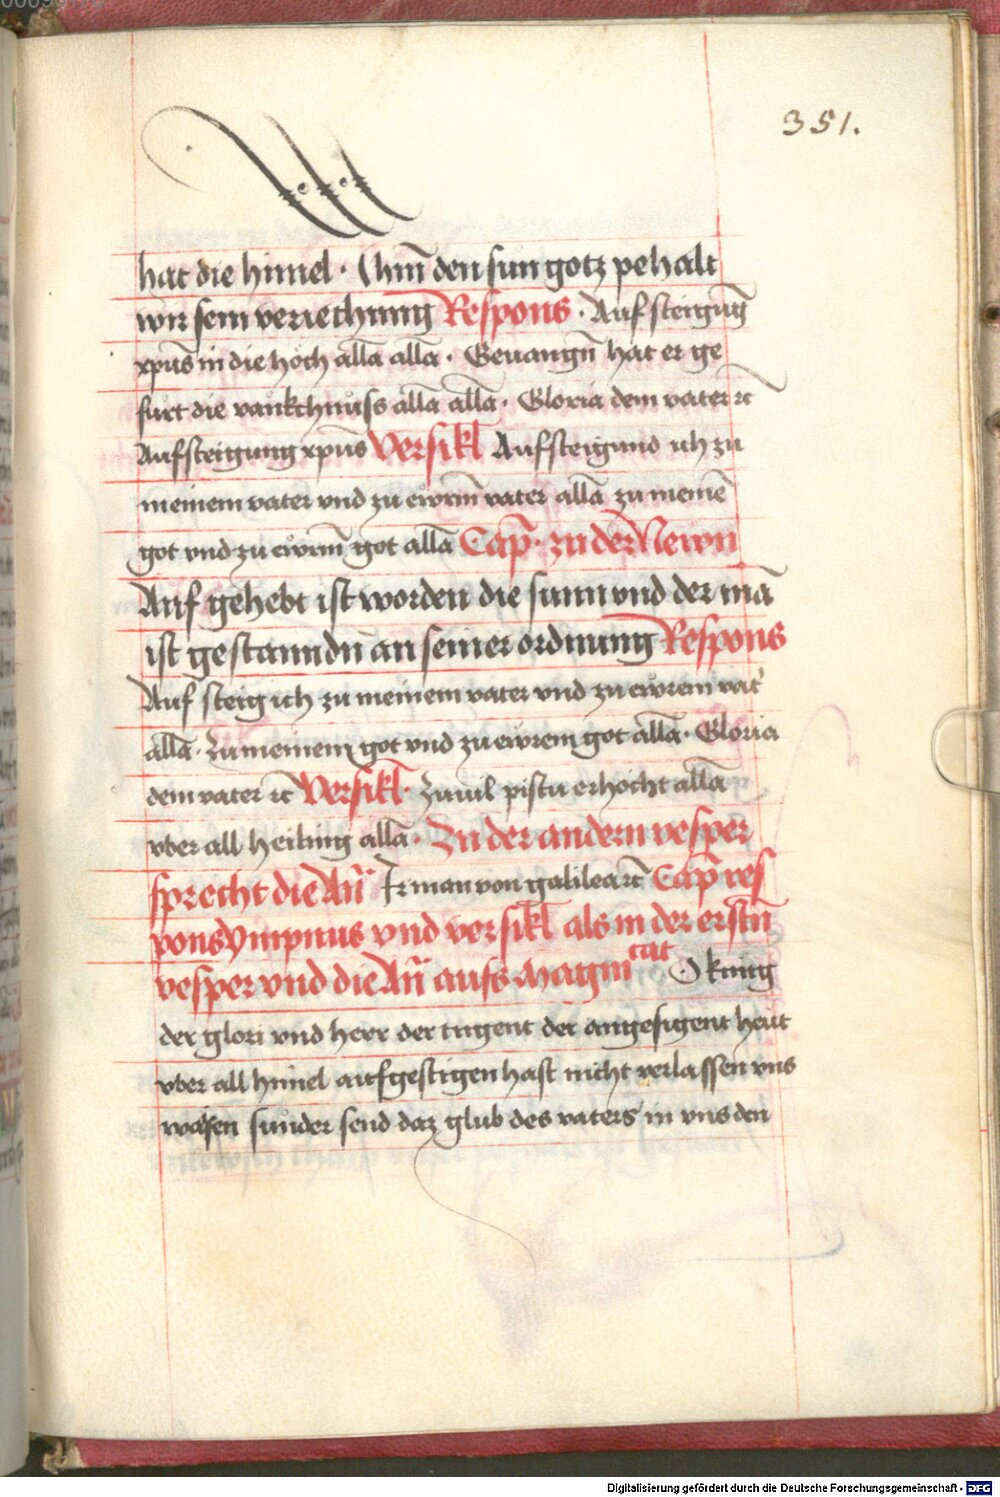 351.
hat die himel · Ihm̄ den sun gotz pehalt
wir sein veriechung Respons · Auf steigūg
xpūs in die höch allā allā · Gevangn̄ hat er ge
fürt die vankchnuss allā allā · Gloria dem vater ꝛc
Aufsteigung xpūs Versikl Aufsteigund ich zu
meinem vater vnd zu ewrm̄ vater allā zu meinē
got vnd zu ewrm̄ got allā Cap̄ · zu der Newn
Auf gehebt ist worden die sunn vnd der mā
ist gestanndn̄ an seiner ordnung Respons
Auf steig ich zu meinem vater vnd zu ewrem vat̕
allā · zu meinem got vnd zu ewrem got allā · Gloria
dem vater ꝛc Versikl · Zuvil pistu erhöcht allā
vber all heiling allā · Zu der andern vesper
sprecht die Añ Ir man von galilea ꝛc Cap̄ res
pons ympnus vnd versikl als in der erstn̄
vesper vnd die Añ aufs Magnificat O kunig
der glori vnd herr der tugent der angesigent heut
vber all himel aufgestigen hast nicht verlassen vns
waisen sunder send daz glub des vaters in vns den
Digitalisierung gefördert durch die Deutsche Forschungsgemeinschaft - DFG